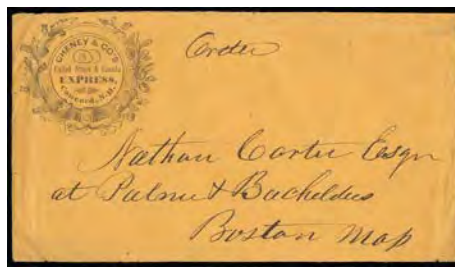 CHENEY & CO'S
United States & Canada
EXPRESS,
Concord, N.H.
Order
Nathan Carter Esqr
at Palmer & Bachelders
Boston Mass